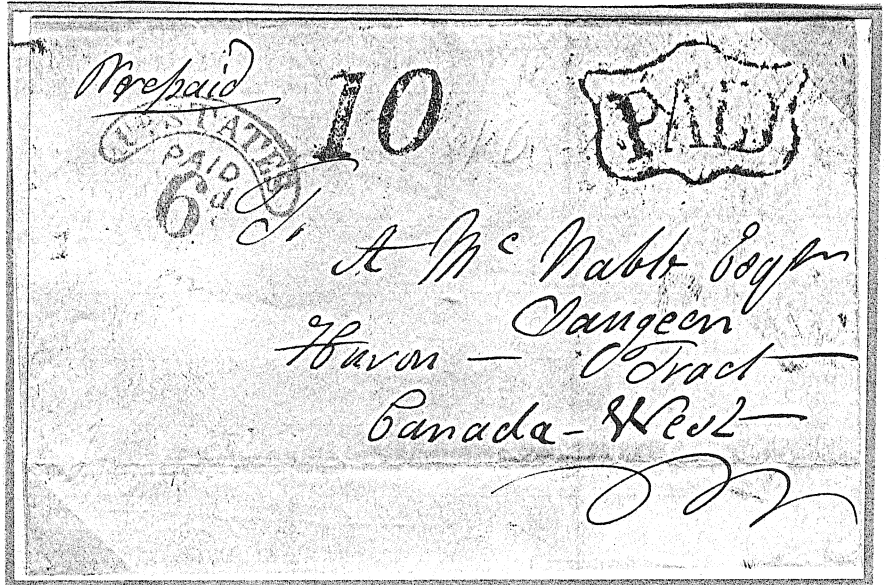 Prepaid
10
PAID
U. STATES
PAID
6d
To
A Mc Nabb Esqr
Saugeen
Huron — Tract
Canada - West